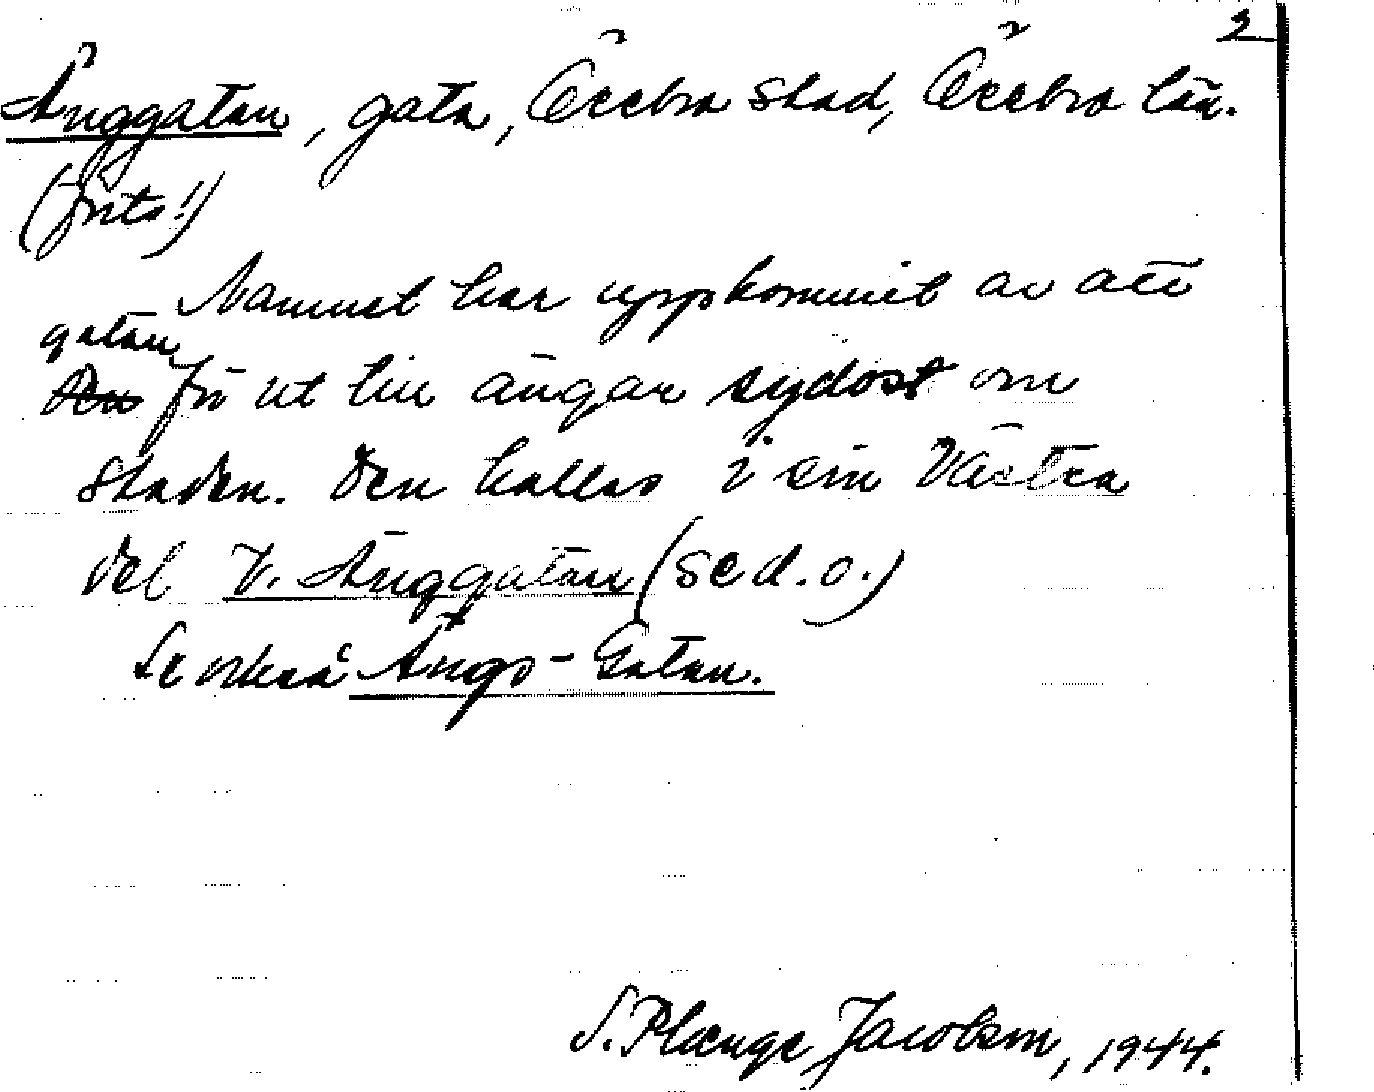 2
Änggatan, gata, Örebro stad, Örebro län.
(forts.)
Namnet har uppkommit av att
gatan
Den för ut till ängar sydost om
staden. Den kallas i sin västra
del V. Änggatan (se d. o.)
Se också Ängs-Gatan.
S. Plænge Jacobson, 1944.